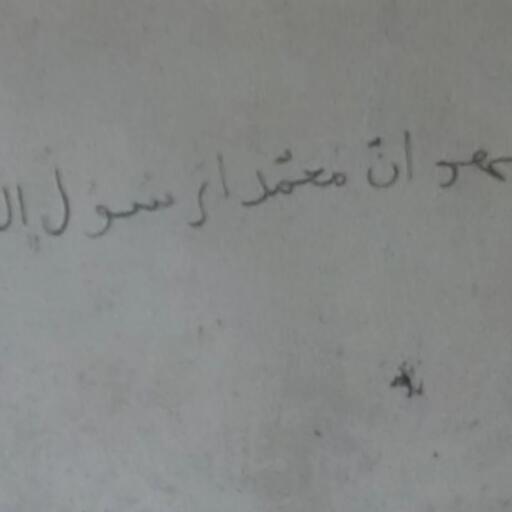 انّ محمّدا رسول ال